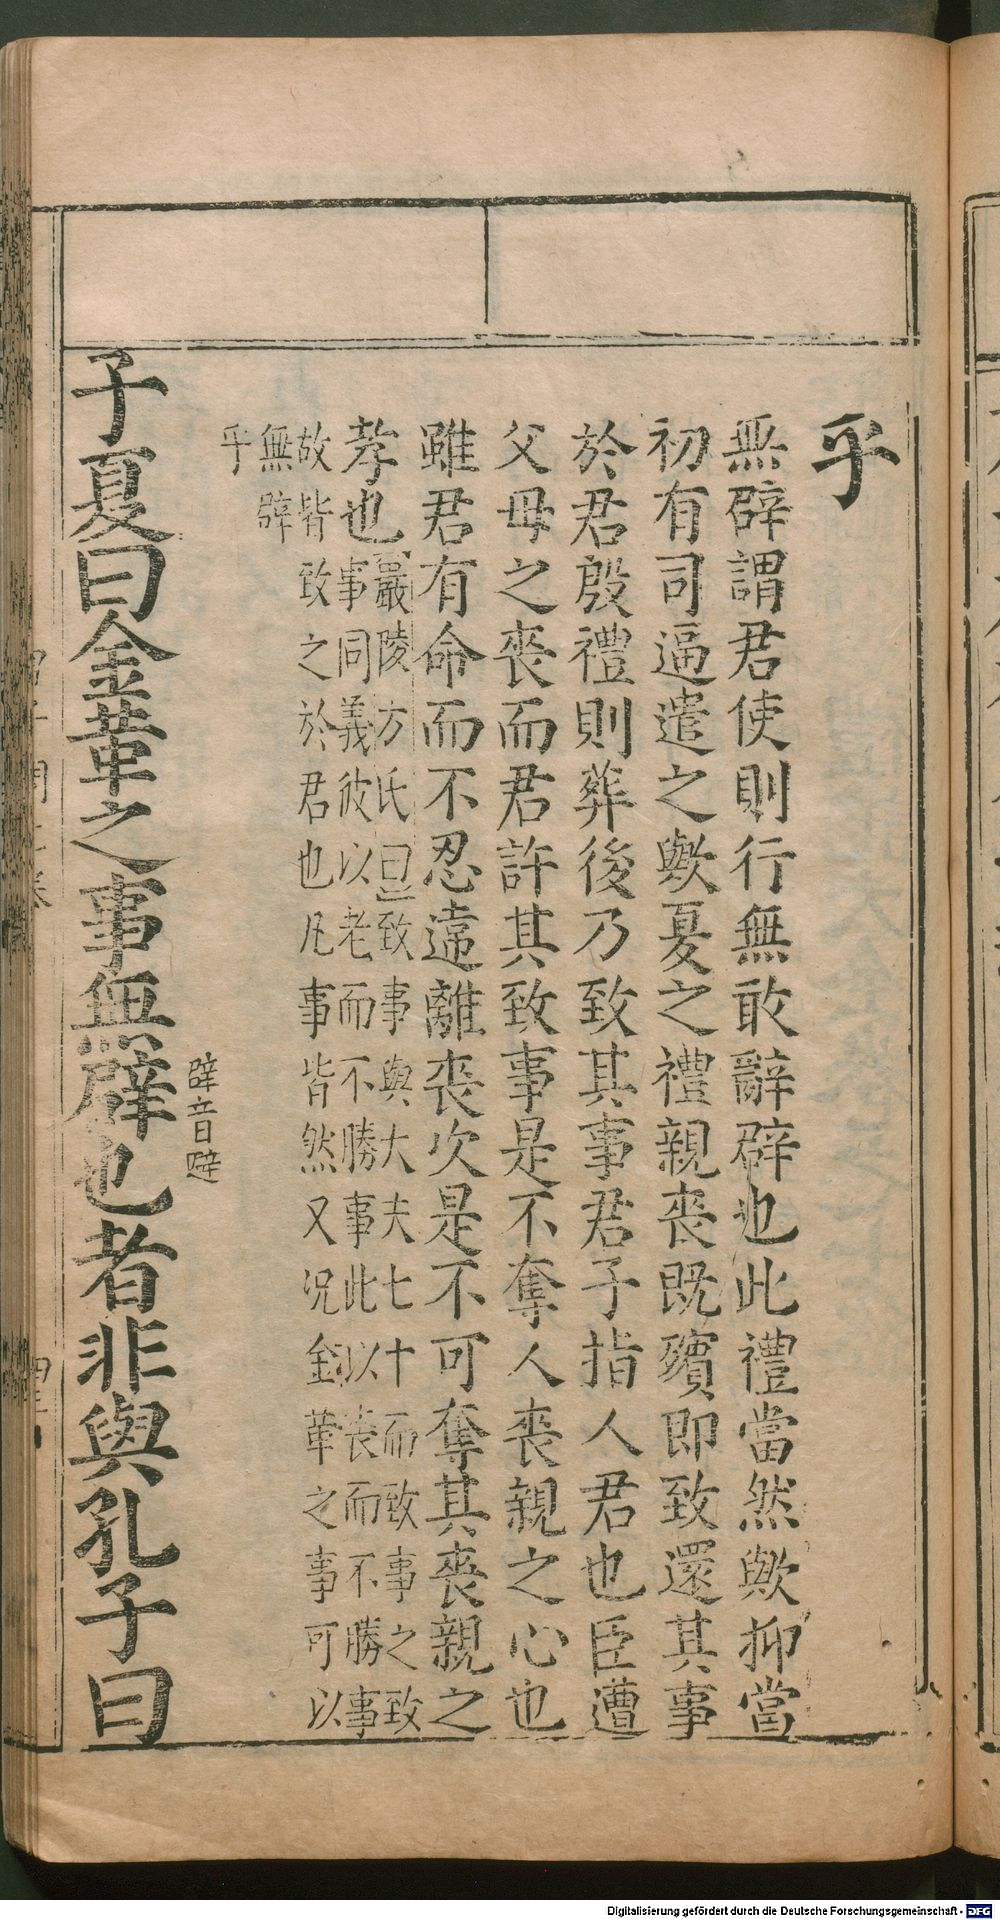 乎
無辟謂君使則行無敢辭辟也此禮當然歟抑當
初有司逼遣之歟夏之禮親喪既殯即致還其事
於君殷禮則葬後乃致其事君子指人君也臣遭
父母之喪而君許其致事是不奪人喪親之心也
雖君有命而不忍違離喪次是不可奪其喪親之
孝也
嚴陵方氏曰致事與大夫七十而致事之致
事同義彼以老而不勝事此以喪而不勝事
故皆致之於君也凡事皆然又況金革之事可以
無辟
乎
辟音避
子夏曰金革之事無辟也者非與孔子曰
Digitalisierung gefördert durch die Deutsche Forschungsgemeinschaft - DFG